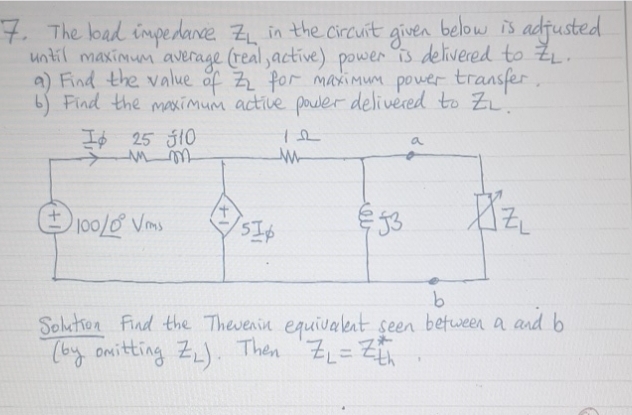 7. The load impedance Z_L in the circuit given below is adjusted
until maximum average (real, active) power is delivered to Z_L.
a) Find the value of Z_L for maximum power transfer.
b) Find the maximum active power delivered to Z_L.
Iφ 25 j10 1 Ω a
+ 100/0° Vrms + 5Iφ j3 Z_L
b
Solution Find the Thevenin equivalent seen between a and b
(by omitting Z_L). Then Z_L = Z*_th.